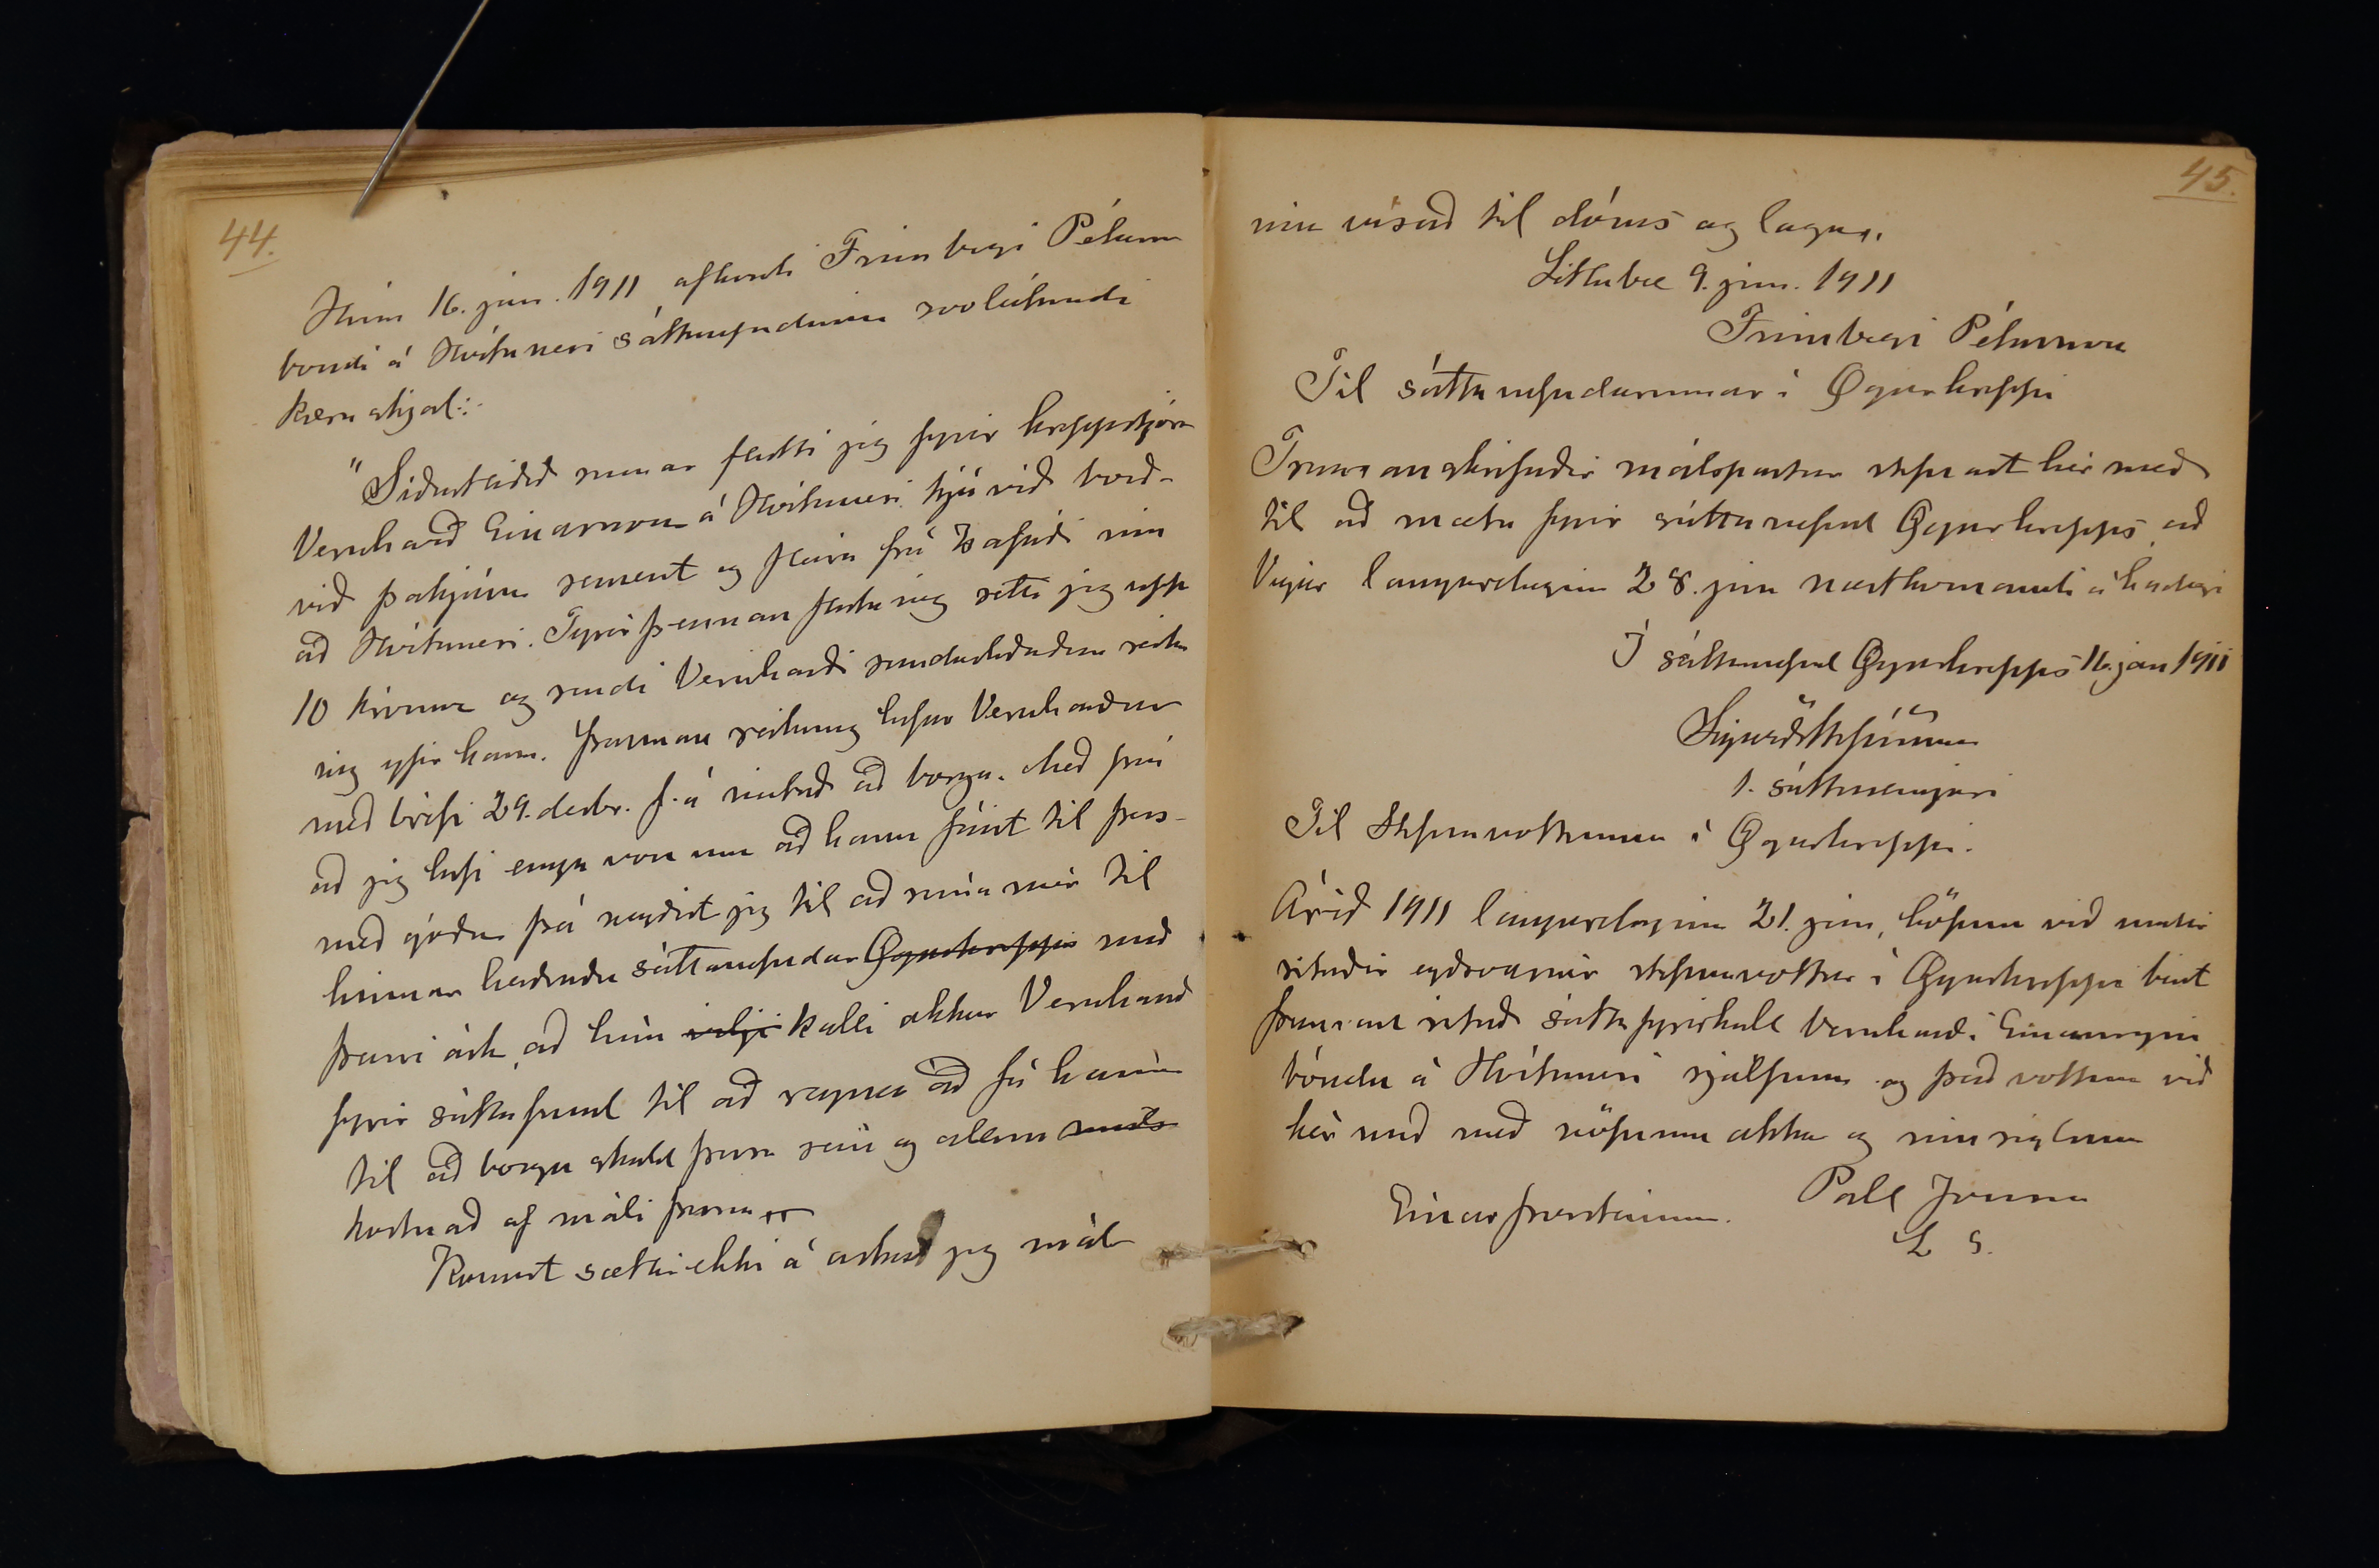 44.
Hinn 16. jan. 1911 afhenti Finnbogi Péturss
bóndi á Hvítanesi sáttanefndinni svolátandi
kæruskjal:
"Síðastliðið sumar flutti jeg fyrir hreppstjóra
Vernharð Einarsson á Hvítanesi trjávið borð-
við þakjárn sement og fleira frá Ísafirði inn
að Hvítanesi. Fyrir þennan flutning setti jeg upp
10 krónur og sendi Vernharði sundurliðaðan reikn
ing yfir hann. Þennan reikning hefur Vernharður
með brjefi 29. desbr. f. á neitað að borga. Með því
að jeg hefi enga von um að hann fáist til þess
með góðu þá neyðist jeg til að snúa mér til
hinnar heiðruðu sáttanefndar Ögurhrepps með
þeirri ósk, að hún vilji kalli okkur Vernharð
fyrir sáttafund til að reyna að fá hann
til að borga skuld þessa sem og allan máls
kostnað af máli þessu
Komist sættir ekki á óska jeg mál
45.
inu vísað til dóms og laga".
Litlabæ 9. jan. 1911
Finnbogi Pétursson
Til sáttanefndarinnar í Ögurhreppi
Framanskrifaðir málspartar stefnast hér með
til að mæta fyrir sáttanefnd Ögurhrepps að
Vigur laugardaginn 28. jan næstkomandi á hádegi
Í sáttanefnd Ögurhrepps 16. jan 1911
Sigurður Stefánsson
1. sáttasemjari
Til Stefnuvottanna í Ögurhreppi.
Árið 1911 laugardaginn 21. jan, höfum við undir
ritaðir eiðsvarnir stefnuvottar í Ögurhreppi birt
framanritað sáttafyrirkall Vernharði Einarssyni
bónda á Hvítanesi sjálfum og það vottum við
hér með með nöfnum okkar og innsiglum
Einar Þorsteinsson. Páll Jónsson
L S.